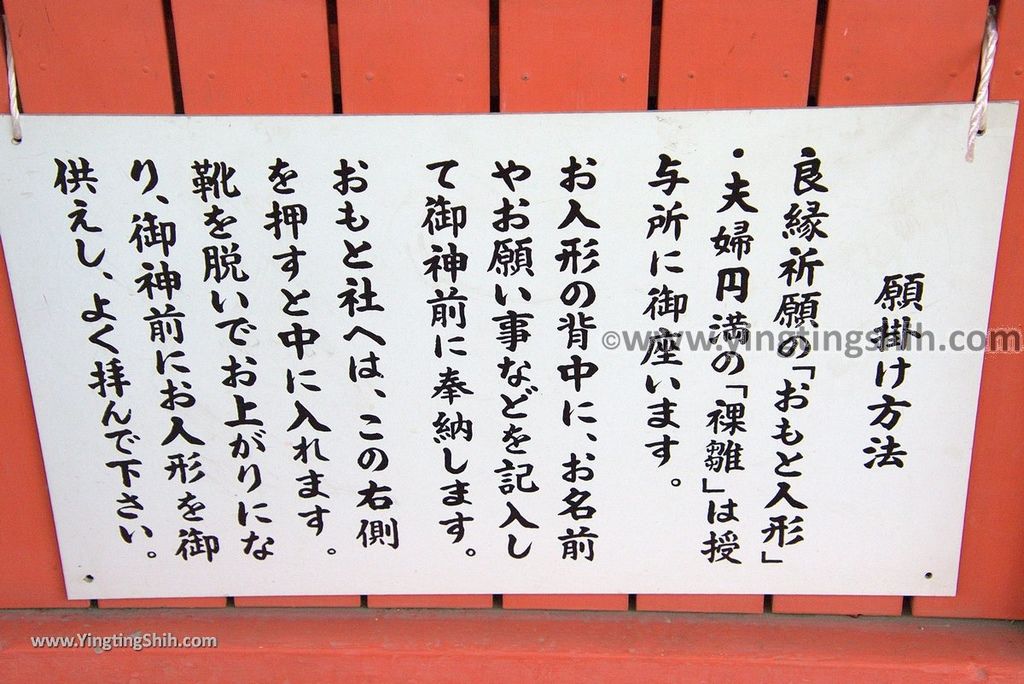 願掛け方法
良縁祈願の「おもと人形」
・夫婦円満の「裸雛」は授
与所に御座います。
お人形の背中に、お名前
やお願い事などを記入し
て御神前に奉納します。
おもと社へは、この右側
を押すと中に入れます。
靴を脱いでお上がりにな
り、御神前にお人形を御
供えし、よく拝んで下さい。
©www.yingtingshih.com
www.YingtingShih.com